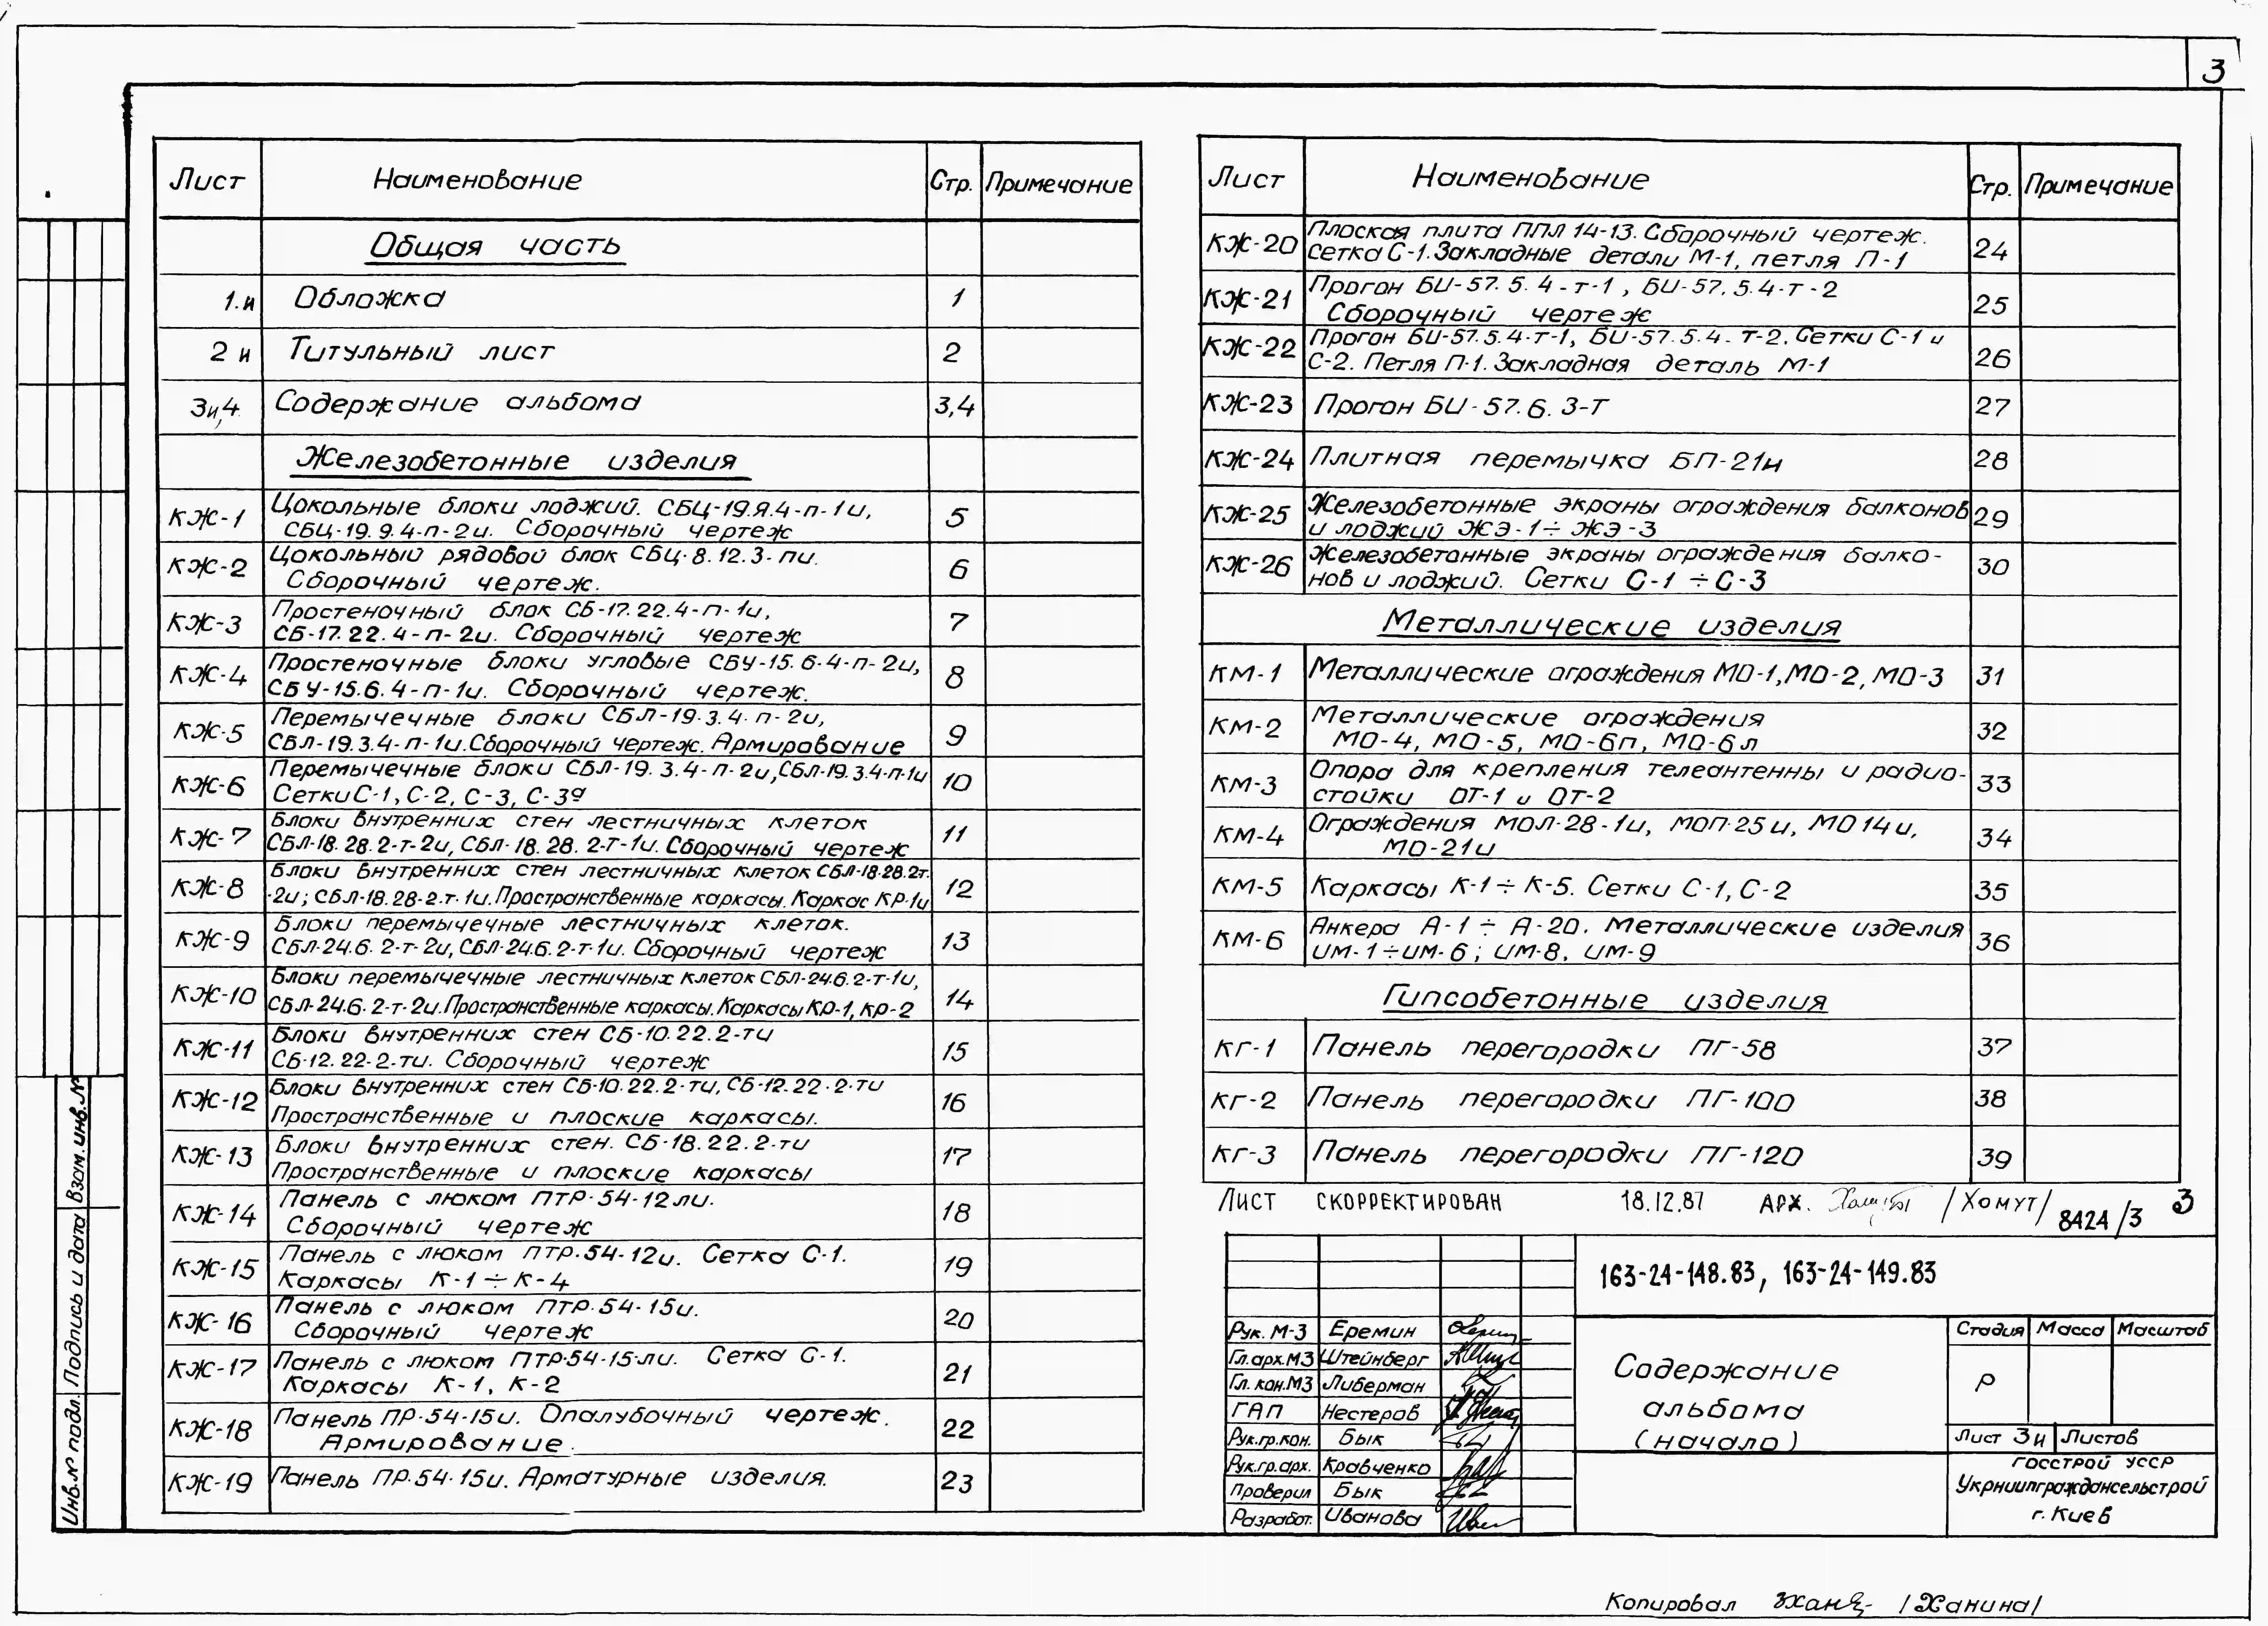 3
Лист Наименование Стр. Примечание
Общая часть
1.и Обложка 1
2 и Титульный лист 2
3и,4 Содержание альбома 3,4
Железобетонные изделия
КЖ-1 Цокольные блоки лоджий. СБЦ-19.Я.4-п-1и, 5
СБЦ-19.9.4-п-2и. Сборочный чертеж
КЖ-2 Цокольный рядовой блок СБЦ-8.12.3-пи. 6
Сборочный чертеж.
КЖ-3 Простеночный блок СБ-17.22.4-п-1и, 7
СБ-17.22.4-п-2и. Сборочный чертеж
КЖ-4 Простеночные блоки угловые СБУ-15.6.4-п-2и, 8
СБУ-15.6.4-п-1и. Сборочный чертеж.
КЖ-5 Перемычечные блоки СБЛ-19.3.4-п-2и, 9
СБЛ-19.3.4-п-1и.Сборочный чертеж. Армирование
КЖ-6 Перемычечные блоки СБЛ-19.3.4-п-2и,СБЛ-19.3.4-п-1и 10
Сетки С-1, С-2, С-3, С-3а
КЖ-7 Блоки внутренних стен лестничных клеток 11
СБЛ-18.28.2-т-2и, СБЛ-18.28.2-т-1и. Сборочный чертеж
КЖ-8 Блоки внутренних стен лестничных клеток СБЛ-18.28.2т. 12
-2и; СБЛ-18.28-2.т-1и.Пространственные каркасы. Каркас КР-1и
КЖ-9 Блоки перемычечные лестничных клеток. 13
СБЛ-24.6.2-т-2и, СБЛ-24.6.2-т-1и. Сборочный чертеж
КЖ-10 Блоки перемычечные лестничных клеток СБЛ-24.6.2-т-1и, 14
СБЛ-24.6.2-т-2и.Пространственные каркасы. Каркасы КР-1, КР-2
КЖ-11 Блоки внутренних стен СБ-10.22.2-ти 15
СБ-12.22-2-ти. Сборочный чертеж
КЖ-12 Блоки внутренних стен СБ-10.22.2-ти, СБ-12.22.2-ти 16
Пространственные и плоские каркасы.
КЖ-13 Блоки внутренних стен. СБ-18.22.2-ти 17
Пространственные и плоские каркасы
КЖ-14 Панель с люком ПТР-54-12ли. 18
Сборочный чертеж
КЖ-15 Панель с люком ПТР.54-12и. Сетка С-1. 19
Каркасы К-1÷К-4
КЖ-16 Панель с люком ПТР.54-15и. 20
Сборочный чертеж
КЖ-17 Панель с люком ПТР-54-15-ли. Сетка С-1. 21
Каркасы К-1, К-2
КЖ-18 Панель ПР-54-15и. Опалубочный чертеж. 22
Армирование.
КЖ-19 Панель ПР-54-15и. Арматурные изделия. 23
Лист Наименование Стр. Примечание
КЖ-20 Плоская плита ППЛ 14-13. Сборочный чертеж. 24
Сетка С-1. Закладные детали М-1, петля П-1
КЖ-21 Прогон БИ-57.5.4-т-1, БИ-57.5.4-т-2 25
Сборочный чертеж
КЖ-22 Прогон БИ-57.5.4-т-1, БИ-57.5.4.т-2. Сетки С-1 и 26
С-2. Петля П-1. Закладная деталь М-1
КЖ-23 Прогон БИ-57.6.3-Т 27
КЖ-24 Плитная перемычка БП-21и 28
КЖ-25 Железобетонные экраны ограждения балконов 29
и лоджий ЖЭ-1÷ЖЭ-3
КЖ-26 Железобетонные экраны ограждения балко- 30
нов и лоджий. Сетки С-1 ÷ С-3
Металлические изделия
КМ-1 Металлические ограждения МО-1, МО-2, МО-3 31
КМ-2 Металлические ограждения 32
МО-4, МО-5, МО-6п, МО-6л
КМ-3 Опора для крепления телеантенны и радио- 33
стойки ОТ-1 и ОТ-2
КМ-4 Ограждения МОЛ-28-1и, МОП-25и, МО14и, 34
МО-21и
КМ-5 Каркасы К-1÷К-5. Сетки С-1, С-2 35
КМ-6 Анкера А-1 ÷ А-20. Металлические изделия 36
ИМ-1÷ИМ-6; ИМ-8, ИМ-9
Гипсобетонные изделия
КГ-1 Панель перегородки ПГ-58 37
КГ-2 Панель перегородки ПГ-100 38
КГ-3 Панель перегородки ПГ-120 39
Лист скорректирован 18.12.87 арх. /Хомут/ 8424/3 3
163-24-148.83, 163-24-149.83
Рук. М-3 Еремин
Гл.арх.М3 Штейнберг
Гл. кон.М3 Либерман
ГАП Нестеров
Рук.гр.кон. Бык
Рук.гр.арх. Кравченко
Проверил Бык
Разработ. Иванова
Содержание
альбома
(начало)
Стадия Масса Масштаб
Р
Лист 3и Листов
Госстрой УССР
Укрниипграждансельстрой
г. Киев
Инв.№ подл. Подпись и дата Взам.инв.№
Копировал /Ханина/